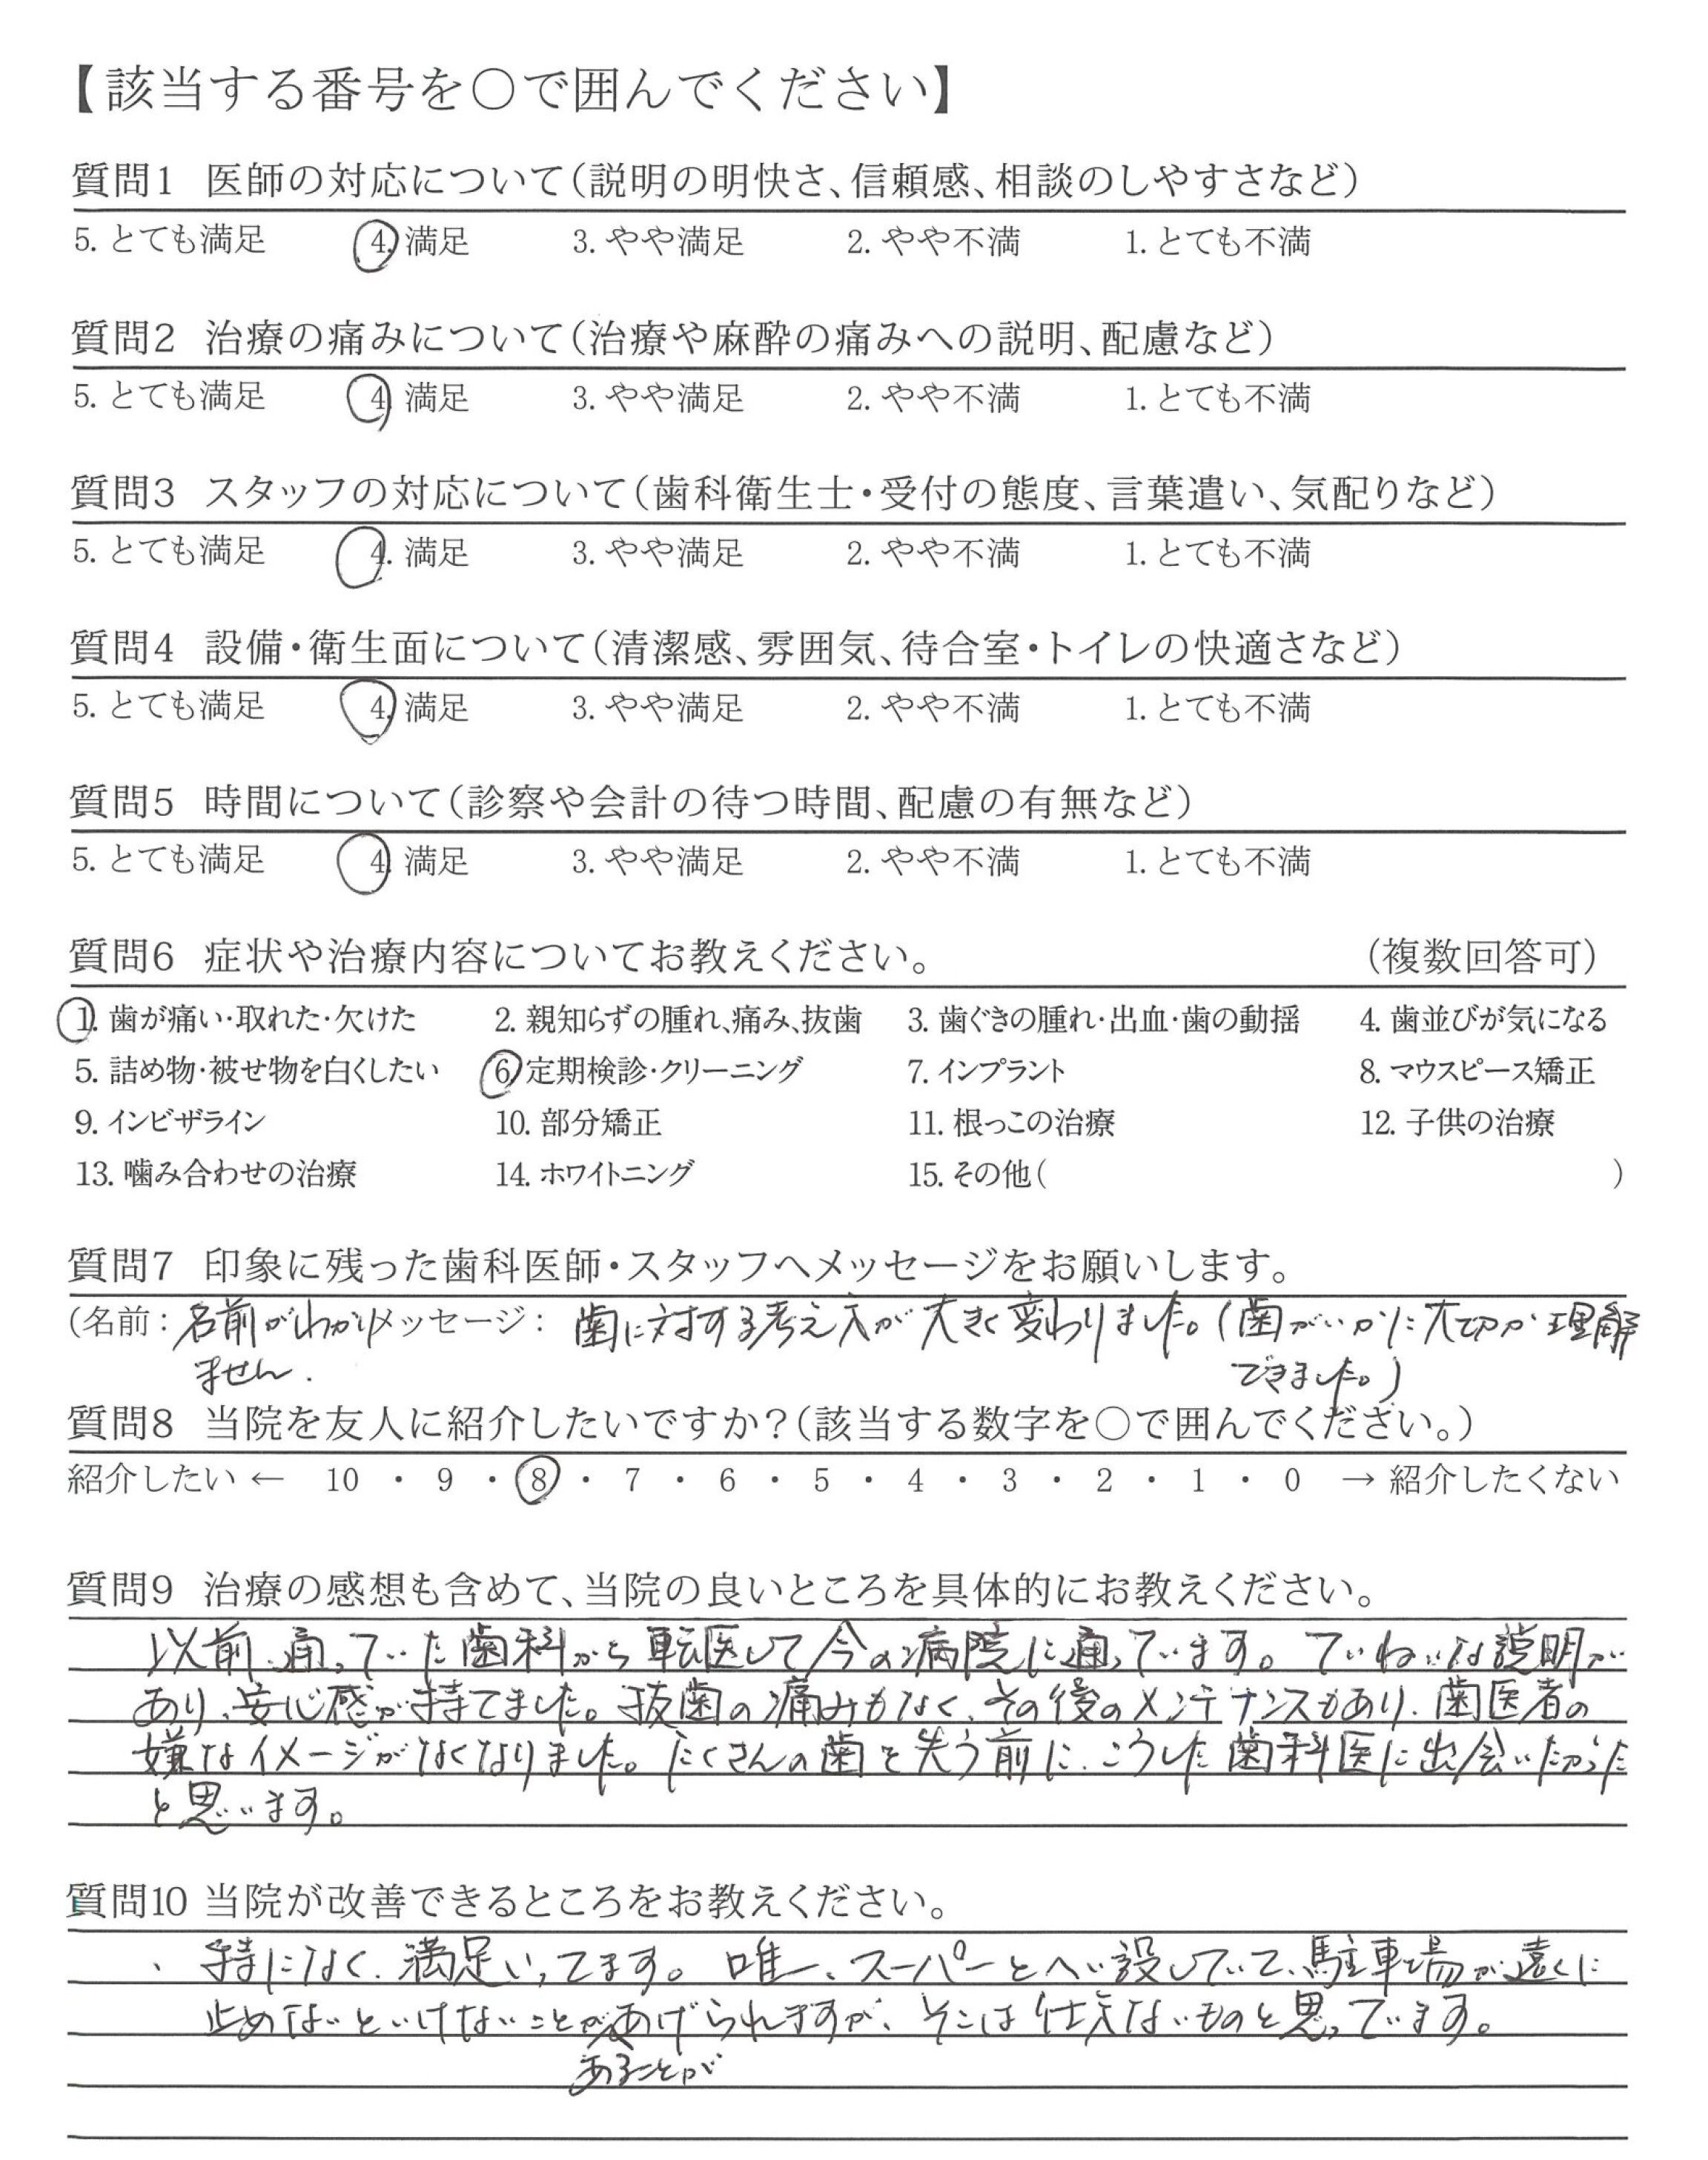 【該当する番号を○で囲んでください】
質問1 医師の対応について(説明の明快さ、信頼感、相談のしやすさなど)
5. とても満足 4. 満足 3. やや満足 2. やや不満 1. とても不満
質問2 治療の痛みについて(治療や麻酔の痛みへの説明、配慮など)
5. とても満足 4. 満足 3. やや満足 2. やや不満 1. とても不満
質問3 スタッフの対応について(歯科衛生士・受付の態度、言葉遣い、気配りなど)
5. とても満足 4. 満足 3. やや満足 2. やや不満 1. とても不満
質問4 設備・衛生面について(清潔感、雰囲気、待合室・トイレの快適さなど)
5. とても満足 4. 満足 3. やや満足 2. やや不満 1. とても不満
質問5 時間について(診察や会計の待つ時間、配慮の有無など)
5. とても満足 4. 満足 3. やや満足 2. やや不満 1. とても不満
質問6 症状や治療内容についてお教えください。 (複数回答可)
1. 歯が痛い・取れた・欠けた 2. 親知らずの腫れ、痛み、抜歯 3. 歯ぐきの腫れ・出血・歯の動揺 4. 歯並びが気になる
5. 詰め物・被せ物を白くしたい 6. 定期検診・クリーニング 7. インプラント 8. マウスピース矯正
9. インビザライン 10. 部分矯正 11. 根っこの治療 12. 子供の治療
13. 噛み合わせの治療 14. ホワイトニング 15. その他( )
質問7 印象に残った歯科医師・スタッフへメッセージをお願いします。
(名前: 名前がわかり メッセージ: 歯に対する考え方が大きく変わりました。(歯がいかに大切か理解
ません. できました。)
質問8 当院を友人に紹介したいですか?(該当する数字を○で囲んでください。)
紹介したい ← 10 ・ 9 ・ 8 ・ 7 ・ 6 ・ 5 ・ 4 ・ 3 ・ 2 ・ 1 ・ 0 → 紹介したくない
質問9 治療の感想も含めて、当院の良いところを具体的にお教えください。
以前、通っていた歯科から転医して今の病院に通っています。ていねいな説明が
あり、安心感が持てました。抜歯の痛みもなく、その後のメンテナンスもあり、歯医者の
嫌なイメージがなくなりました。たくさんの歯を失う前に、こうした歯科医に出会いたかった
と思います。
質問10 当院が改善できるところをお教えください。
、特になく、満足しってます。唯一、スーパーとへい設していて、駐車場が遠くに
止めないといけないことがあげられますが、そこは仕方ないものと思っています。
あることが